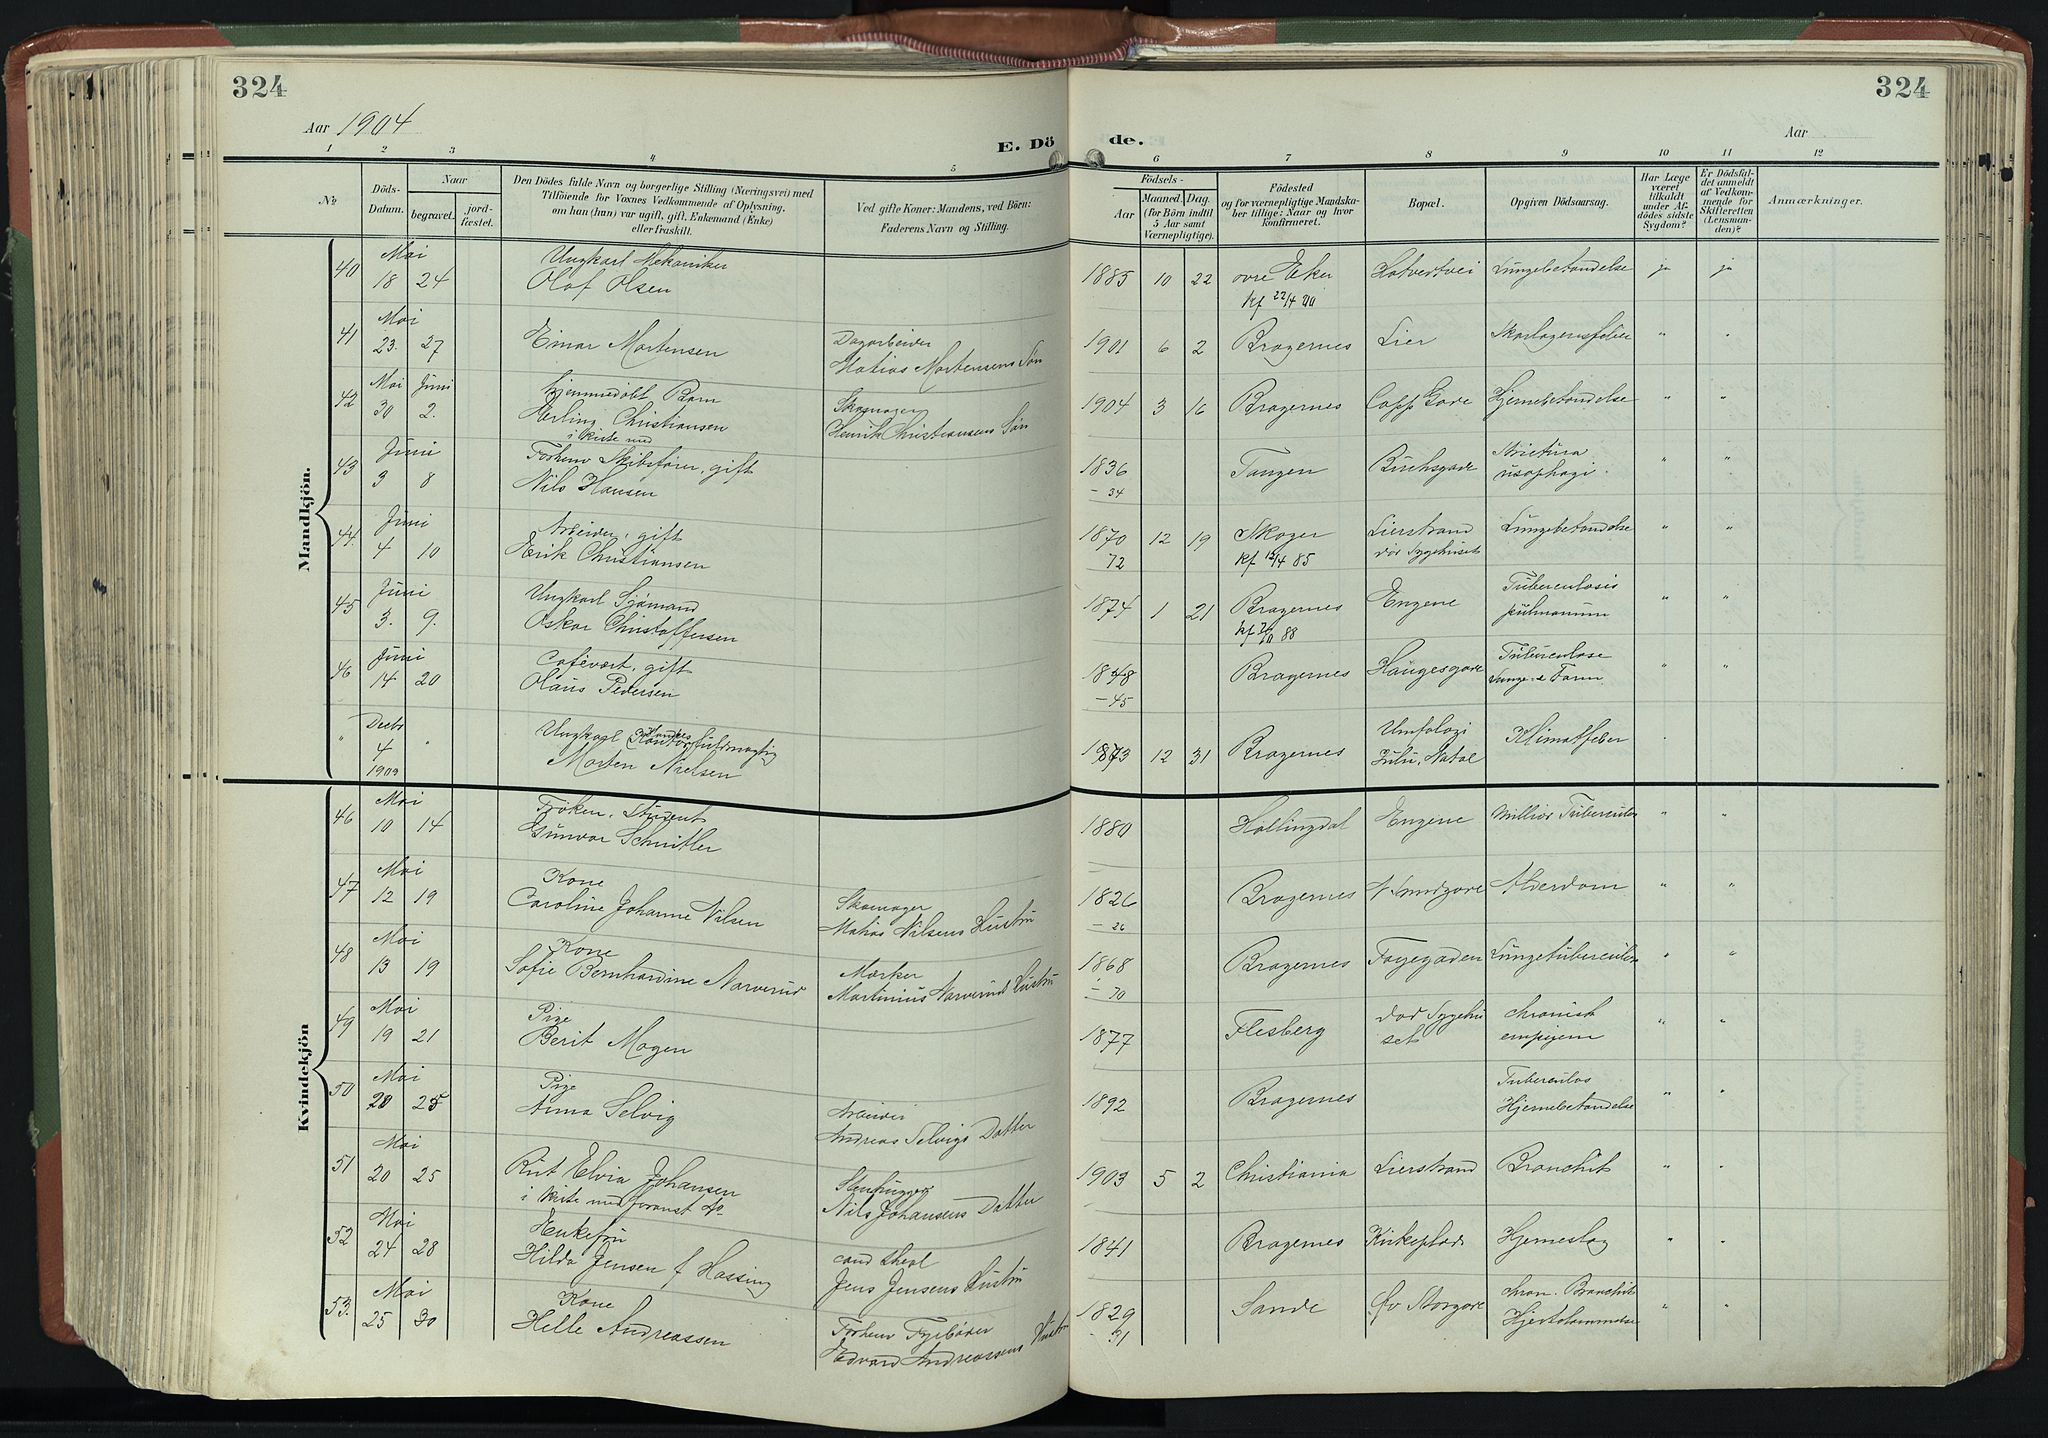 324
324
Aar 1904
Aar
E. Dö
de.
1 2 3 4 5 6 7 8 9 10 11 12
No
Döds-Datum.
Naar
begravet.
jord-fæstet.
Den Dödes fulde Navn og borgerlige Stilling (Næringsvei) med
Tilföiende for Voxnes Vedkommende af Oplysning,
om han (hun) var ugift, gift, Enkemand (Enke)
eller fraskilt.
Ved gifte Koner: Mandens, ved Börn:
Faderens Navn og Stilling.
Födsels-
Aar
Maaned. Dag.
(for Börn indtil
5 Aar samt
Værnepligtige).
Födested
og for værnepligtige Mandska-
ber tillige: Naar og hvor
konfirmeret.
Bopæl.
Opgiven Dödsaarsag.
Har Læge
været
tilkaldt
under Af-
dödes sidste
Sygdom?
Er Dödsfal-
det anmeldt
af Vedkom-
mende for
Skifteretten
(Lensman-
den)?
Anmærkninger.
Mandkjön.
40 Mai 18 24 Ungkarl Mekaniker
Olaf Olsen 1885 10 22 øvre Eker Lungebetændelse ja ja
kf 22/4 00
41 Mai 23. 27 Einar Mortensen Dagarbeider
Matias Mortensens Søn 1901 6 2 Bragernes Lier Skarlagensfeber " "
42 Mai 30 Juni 2. Hjemmedøbt Barn
Erling Christiansen Skomager
Henrik Christiansens Søn 1904 3 16 Bragernes Capp Gade Hjernebetændelse " "
i kiste med
43 Juni 3 8 Forhenv Skibsfører, gift
Nils Hansen 1836 Tangen Buchsgade Strictura
-34 øsophagi. " "
44. Juni 4 10 Arbeider, gift
Erik Christiansen 1870 12 19 Skoger Lierstrand Lungebetændelse " "
72 kf 12/4 85 død Sygehuset
45 Juni 3. 9. Ungkarl Sjømand
Oskar Christoffersen 1874 1 21 Bragernes Engene Tuberculosis
pulmonum " "
88
46 Juni 14 20 Cafévært, gift
Olaus Pedersen 1848 Bragernes Haugesgade Tuberculose
-45 " "
" Decbr 4 1903 " Ungkarl Handelsfuldmægtig
Morten Nielsen 1873 12 31 Bragernes Umfolozi
Zulu, Natal Klimatfeber
Kvindekjön
46 Mai 10 14 Frøken, Student
Gunvor Schnitler 1880 Hallingdal Engene Milliær Tuberculose " "
47 Mai 12 19 Kone
Caroline Johanne Nilsen Skomager
Matias Nilsens Hustru 1826 Bragernes Alderdom " "
-26
48 Mai 13 19 Kone
Sofie Bernhardine Narverud Mærker
Martinius Narverud Hustru 1868 Bragernes Fagegaden Lungetuberculose " "
-70
49 Mai 19 21 Pige
Berit Mogen 1877 Flesberg død Sygehu
set chronisk
empyem " "
50 Mai 20 25 Pige
Anna Selvig Arbeider
Andreas Selvigs Datter 1892 Bragernes Tuberculøs
Hjernebetændelse " "
51 Mai 20 25 Rut Elvia Johansen
i kiste med foranst No Stenhugger
Nils Johansens Datter 1903 5 2 Christiania Lierstrand Bronchit " "
52 Mai 24 28 Enkefru
Hilda Jensen f Hassing cand theol
Jens Jensens Hustru 1841 Bragernes Kirkeplads Hjerneslag " "
53. Mai 25 30 Kone
Helle Andreassen Forhenv Fyrbøder
Edvard Andreassens Hustru 1829 Sande Øv Storgade chron. Bronchit
-31 Hjertelammelse " "